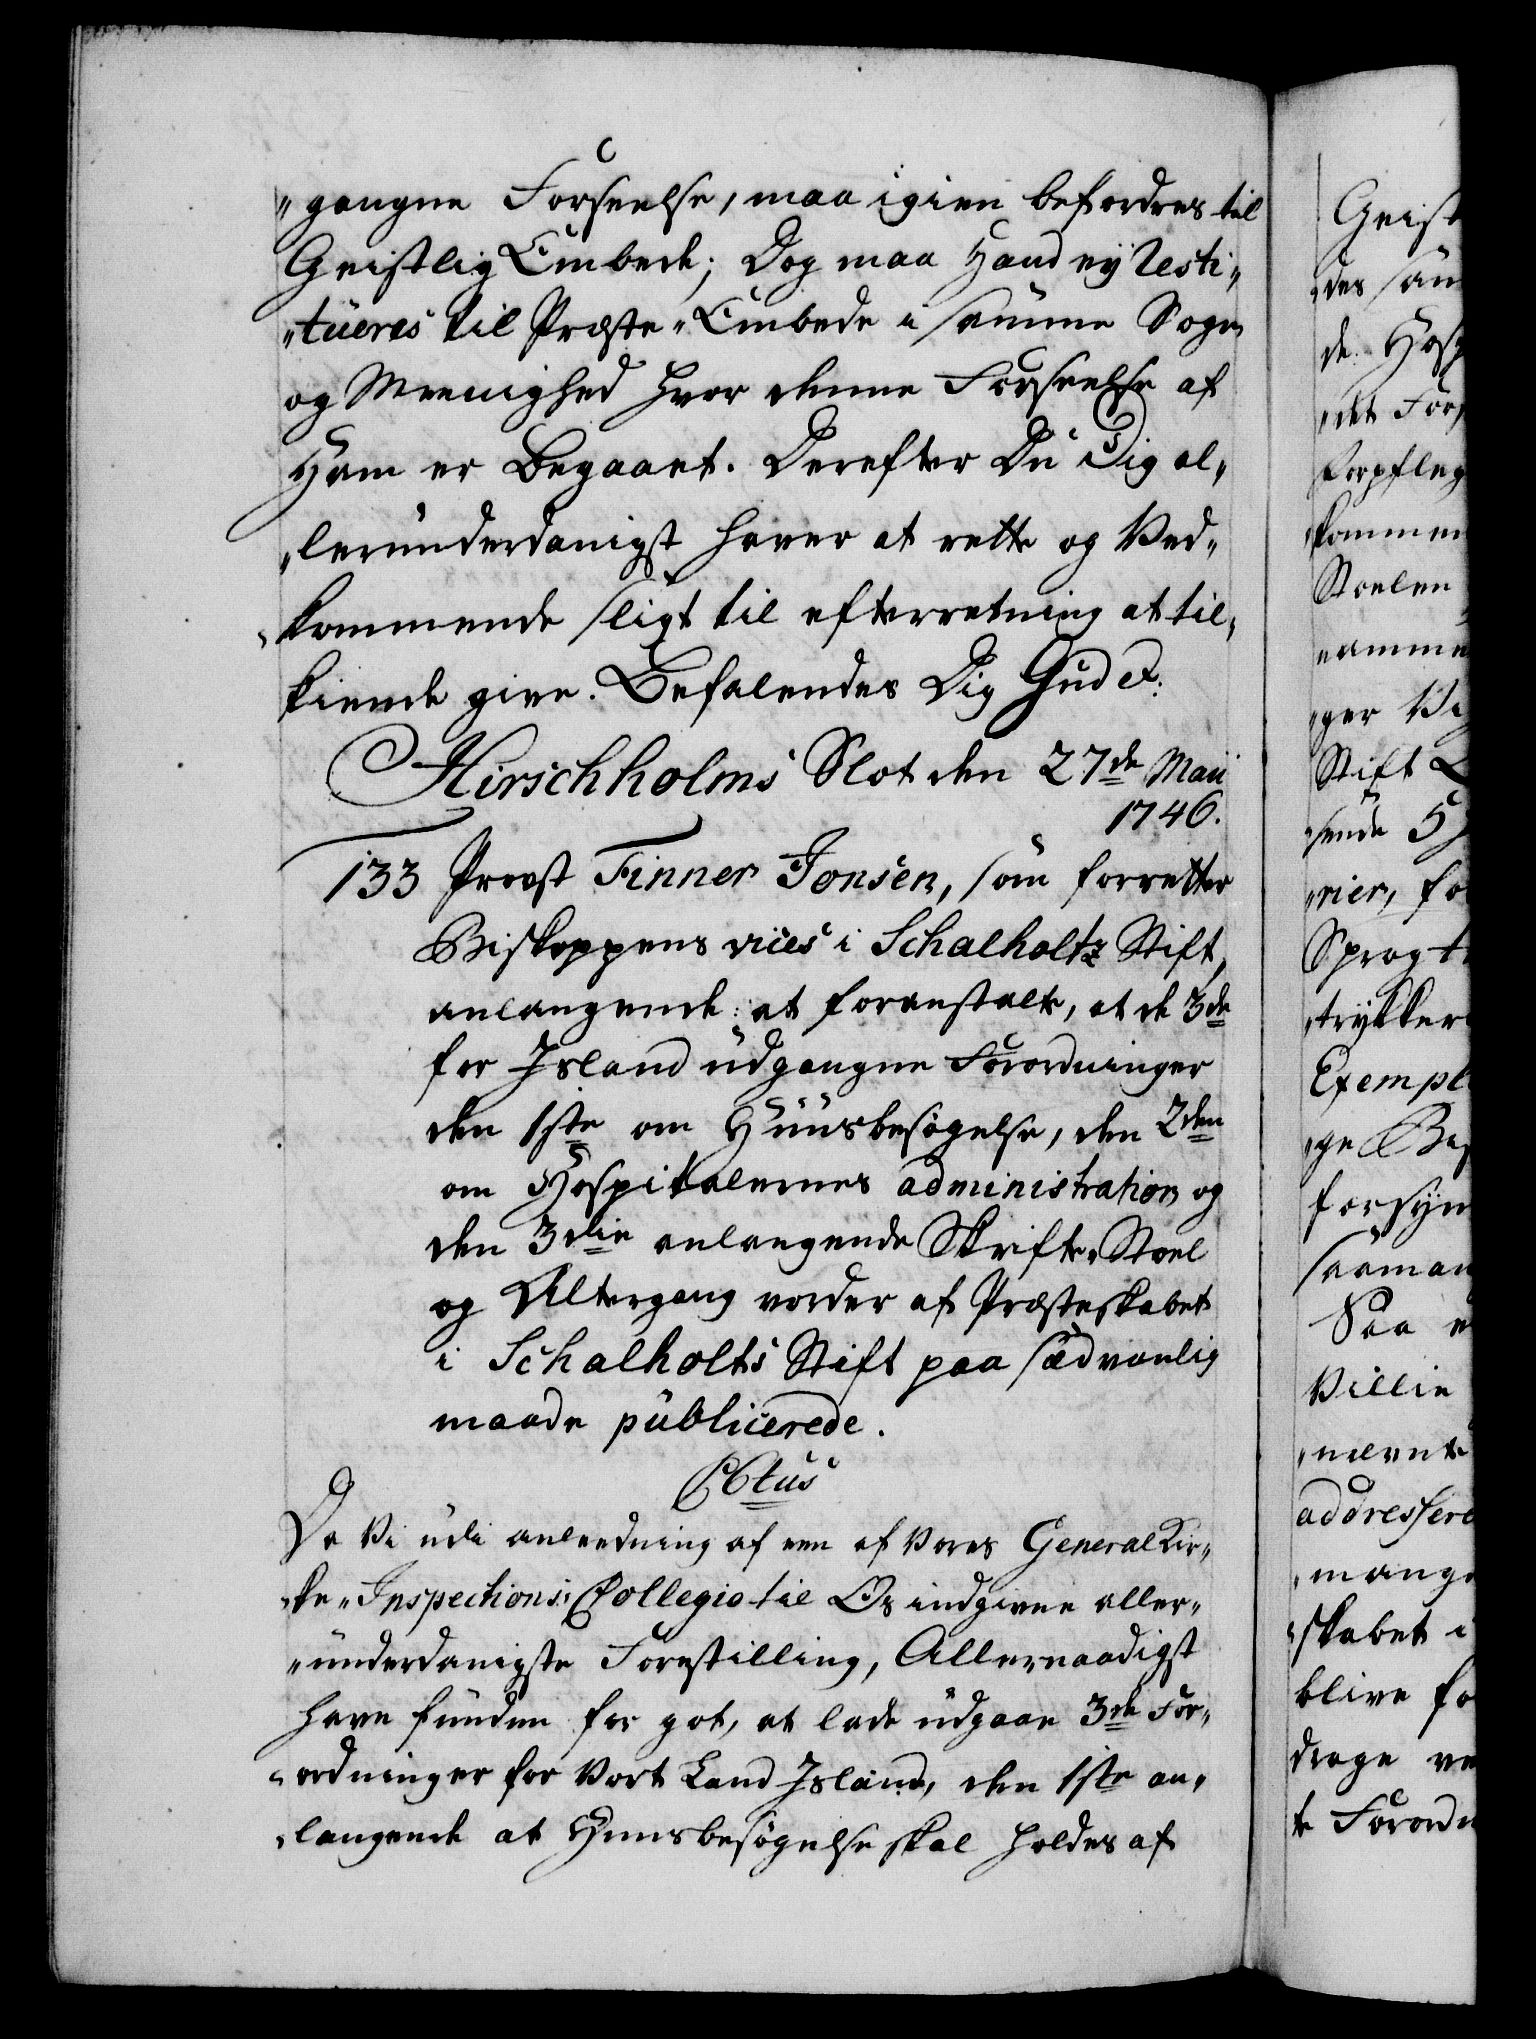 „gangne Forseelse, maa igien befordres til
Geistlig Embede; Dog maa Hand ey Resti„
„tueres til Præste„Embede i samme Sogn
og Meenighed hvor denne Forseelse af
Ham er Begaaet. Derefter Du Dig al„
„lerunderdanigst haver at rette og Ved„
„kommende sligt til efterretning at til„
kiende give. Befalendes Dig Gud &.
Hirschholms Slot den 27de Maii
1746.
133 Provst Finner Jonsen, som forretter
Biskoppens vices i Schalholtz Stift,
anlangende: at foranstalte, at de 3de
for Island udgangne Forordninger
den 1ste om Huusbesøgelse, den 2den
om Hospitalernes administration og
den 3die anlangende Skrifte„Stoel
og Altergang vorder af Præsteskabet
i Schalholts Stift paa sædvanlig
maade publicerede.
C6tus
Da Vi udi anleedning af een af Vores General Kir„
„ke„Inspections: Collegio til Os indgiven aller„
„underdanigste Forestilling, Allernaadigst
have funden for got, at lade udgaae 3de For„
„ordninger for Vort Land Island, den 1ste an„
„langende at Huusbesøgelse skal holdes af
Geist
des sam
de Hosp
„det For
forpfleg
kommen
Stoelen
namme
„ger Vi
Stift
sende 5
„rier, fo
Sprog t
„trykker
Exempl
„ge Be
forsyn
saaman
Saa e
Villie
„nævnte
addressere
„mange
„skabet i
blive fo
drage ve
te Forordn